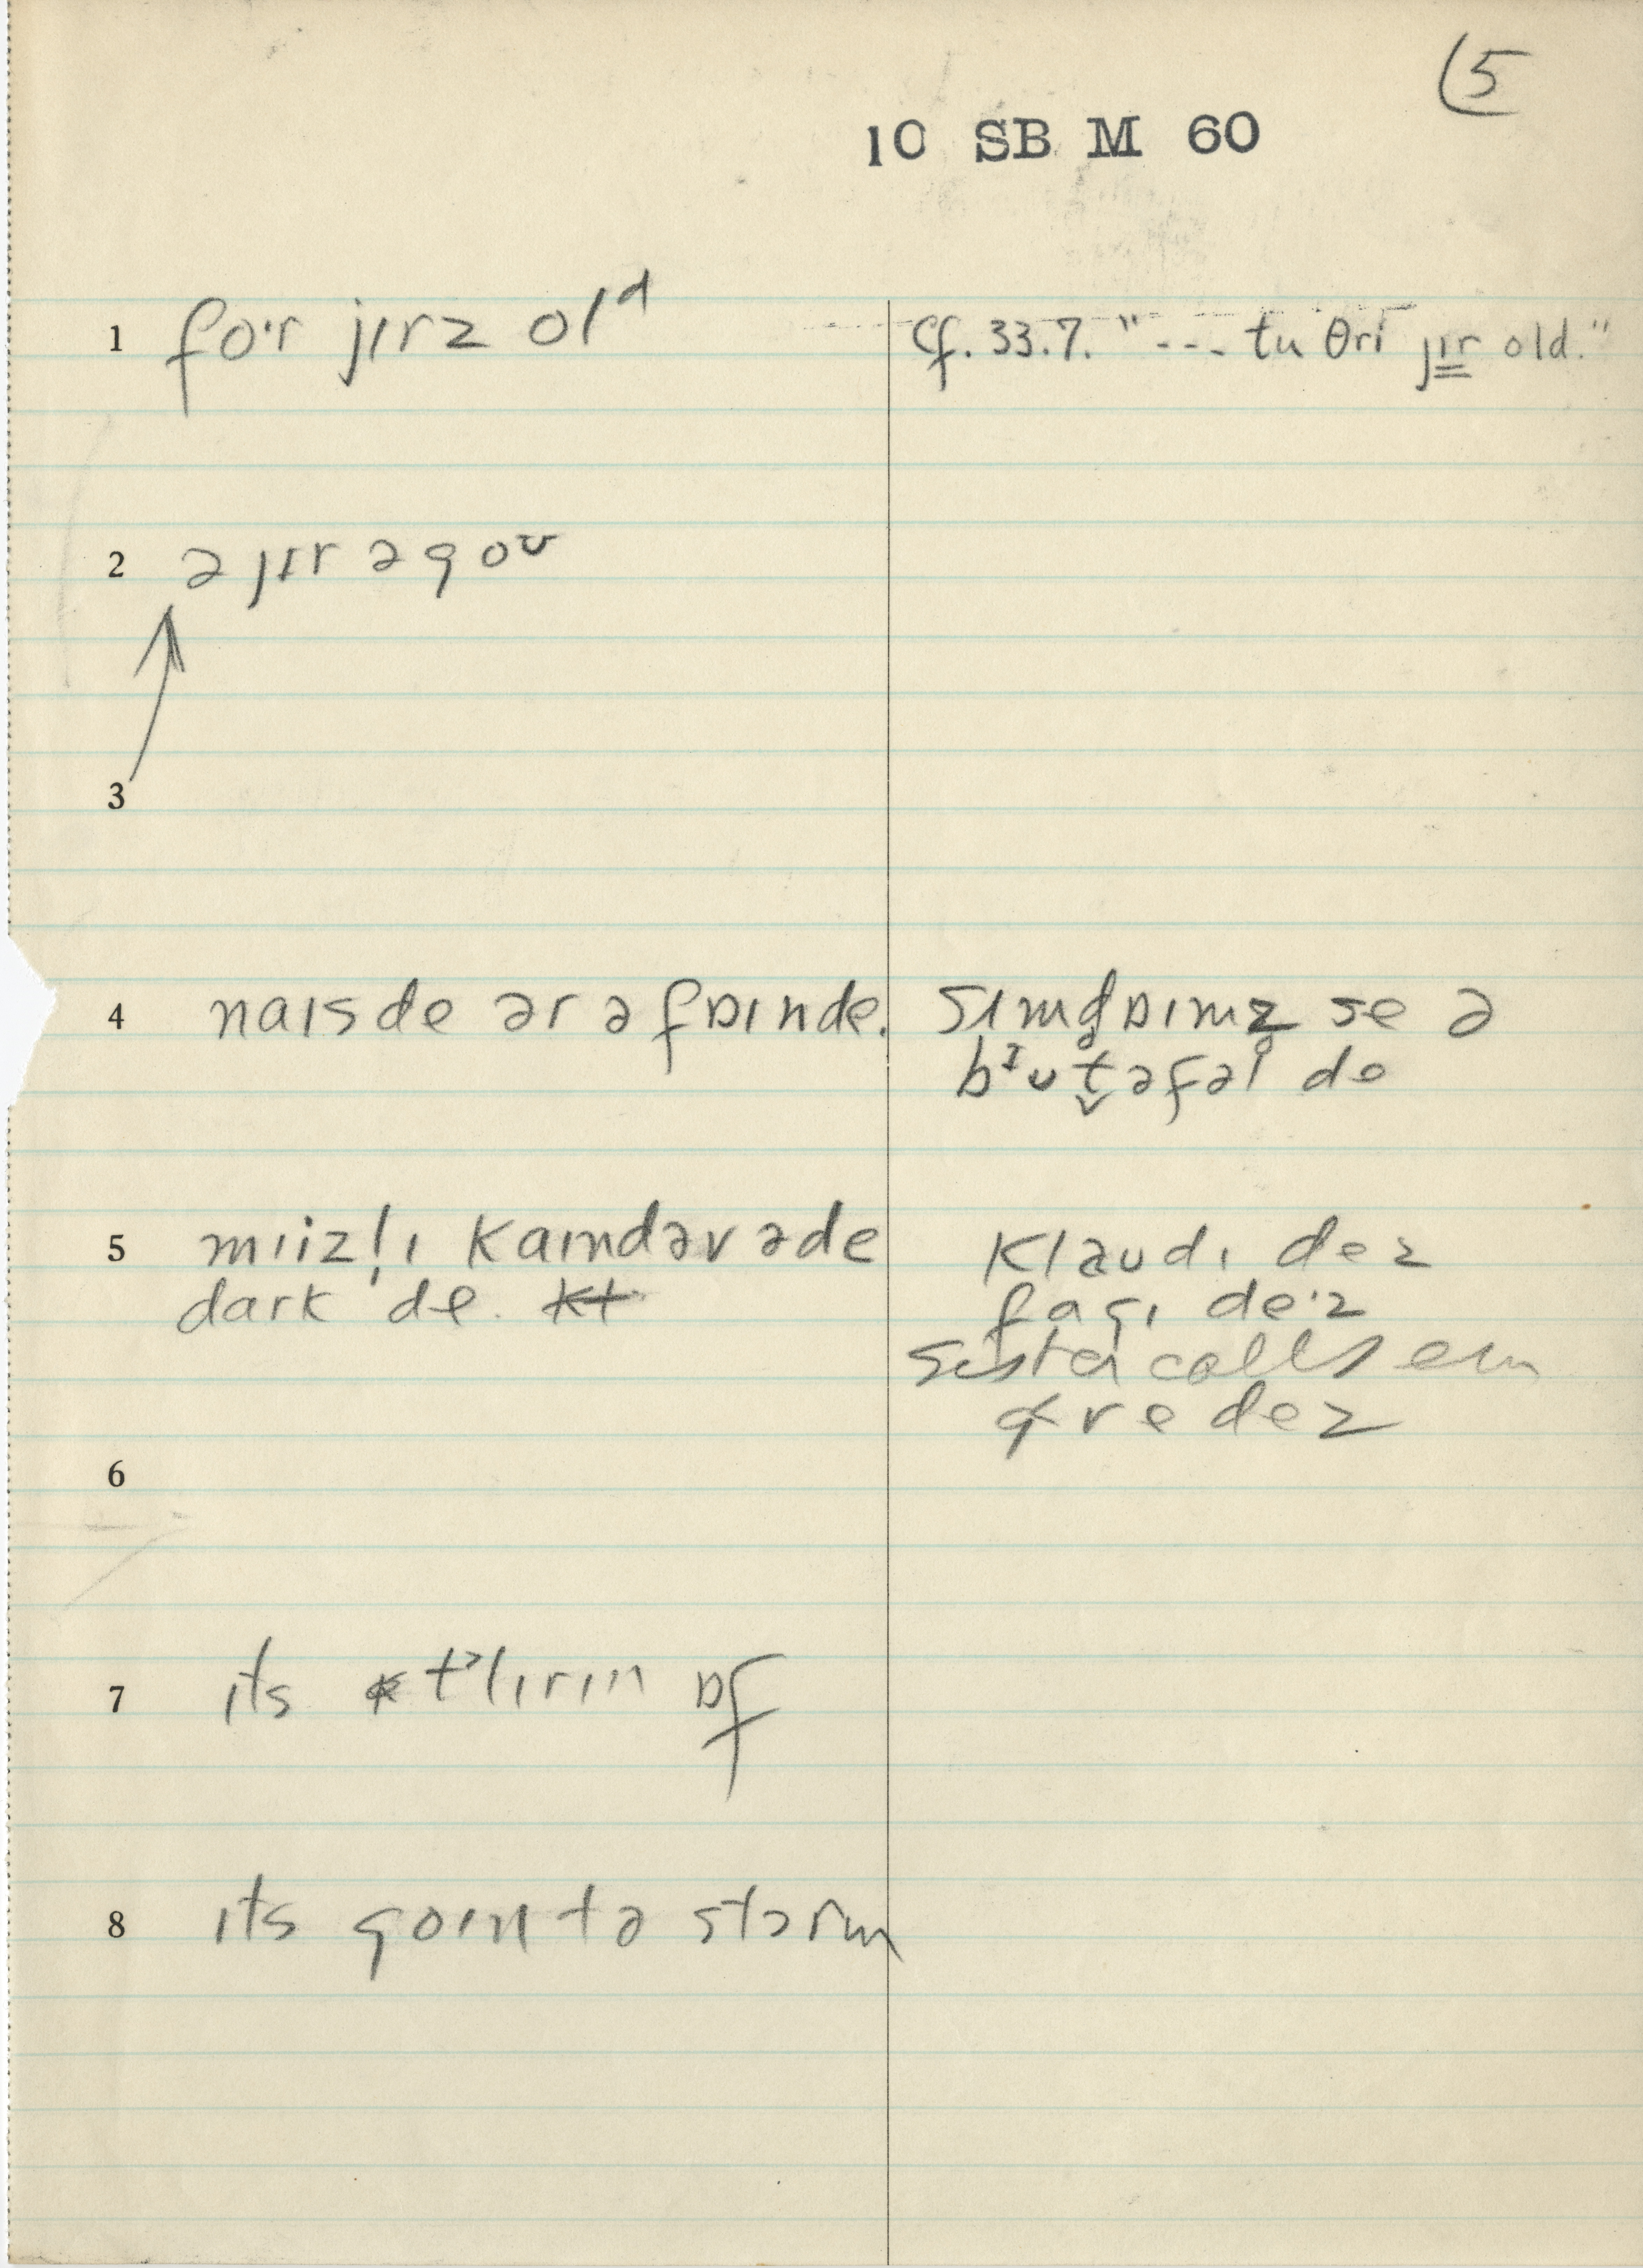 5
10 SB M 60
1 fo·r jɪrz olᵈ
cf. 33.7. "--- tu θri jɪr old."
2 ə jɪr əgoᶷ
3
4 naɪsde ər ə fɒɪnde.
sɪmdɒɪmz se ə
bᶦutəfəl de
5 mɪizlɪ kaɪndəvəde
dark de.
klaudɪ dez
fagɪ de·z
sister calls em
gre dez
6
7 ɪts tˀlɪrɪn ɒf
8 ɪts goɪn tə stɔrm